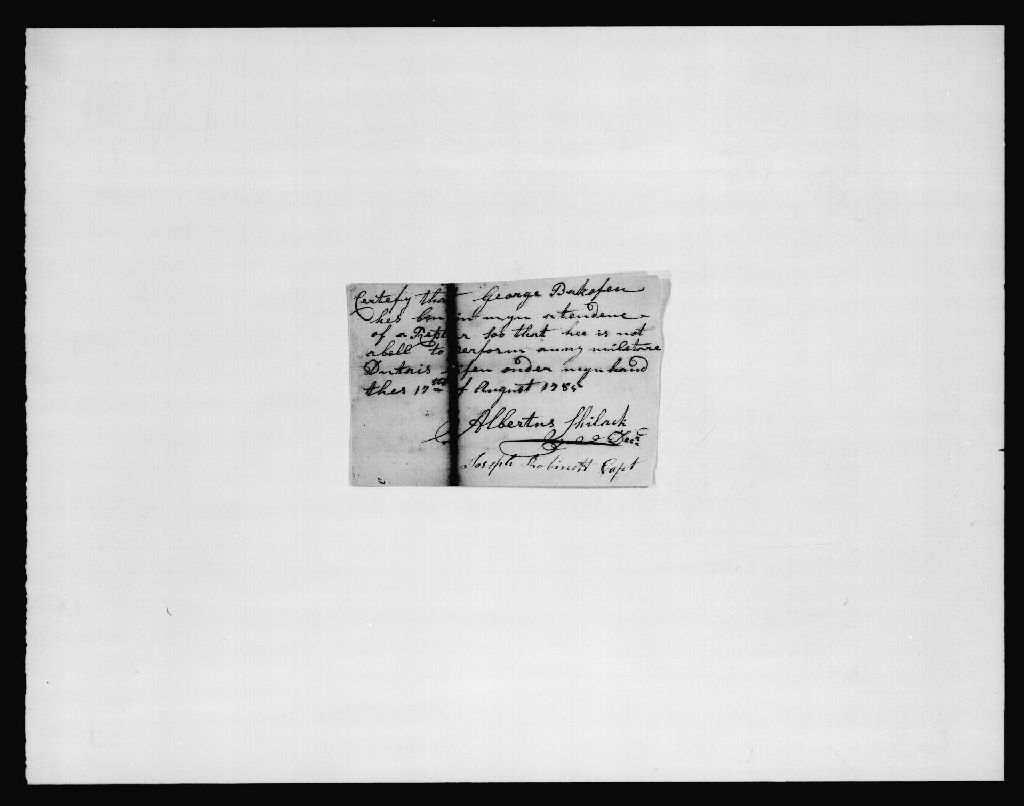 Certefy that George Bakofen
hes ben in myn atendenc
of a so that hee is not
abell to perform anny miletare
Dutais Gifen onder myn hand
thes 17th of August 1785
Albertus Shilack
Docr
Joseph Robinett Capt